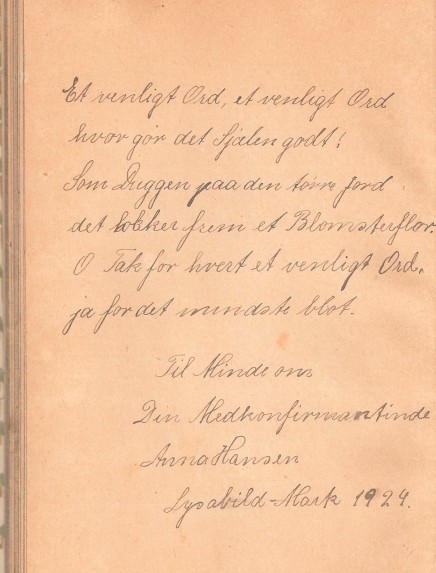 Et venligt Ord, et venligt Ord
hvor gör det Sjælen godt!
Som Duggen paa den törre Jord
det lokker frem et Blomsterflor.
O Tak for hvert et venligt Ord,
ja for det mindste blot.
Til Minde om
Din Medkonfirmantinde
Anna Hansen
Lysabild-Mark 1924.